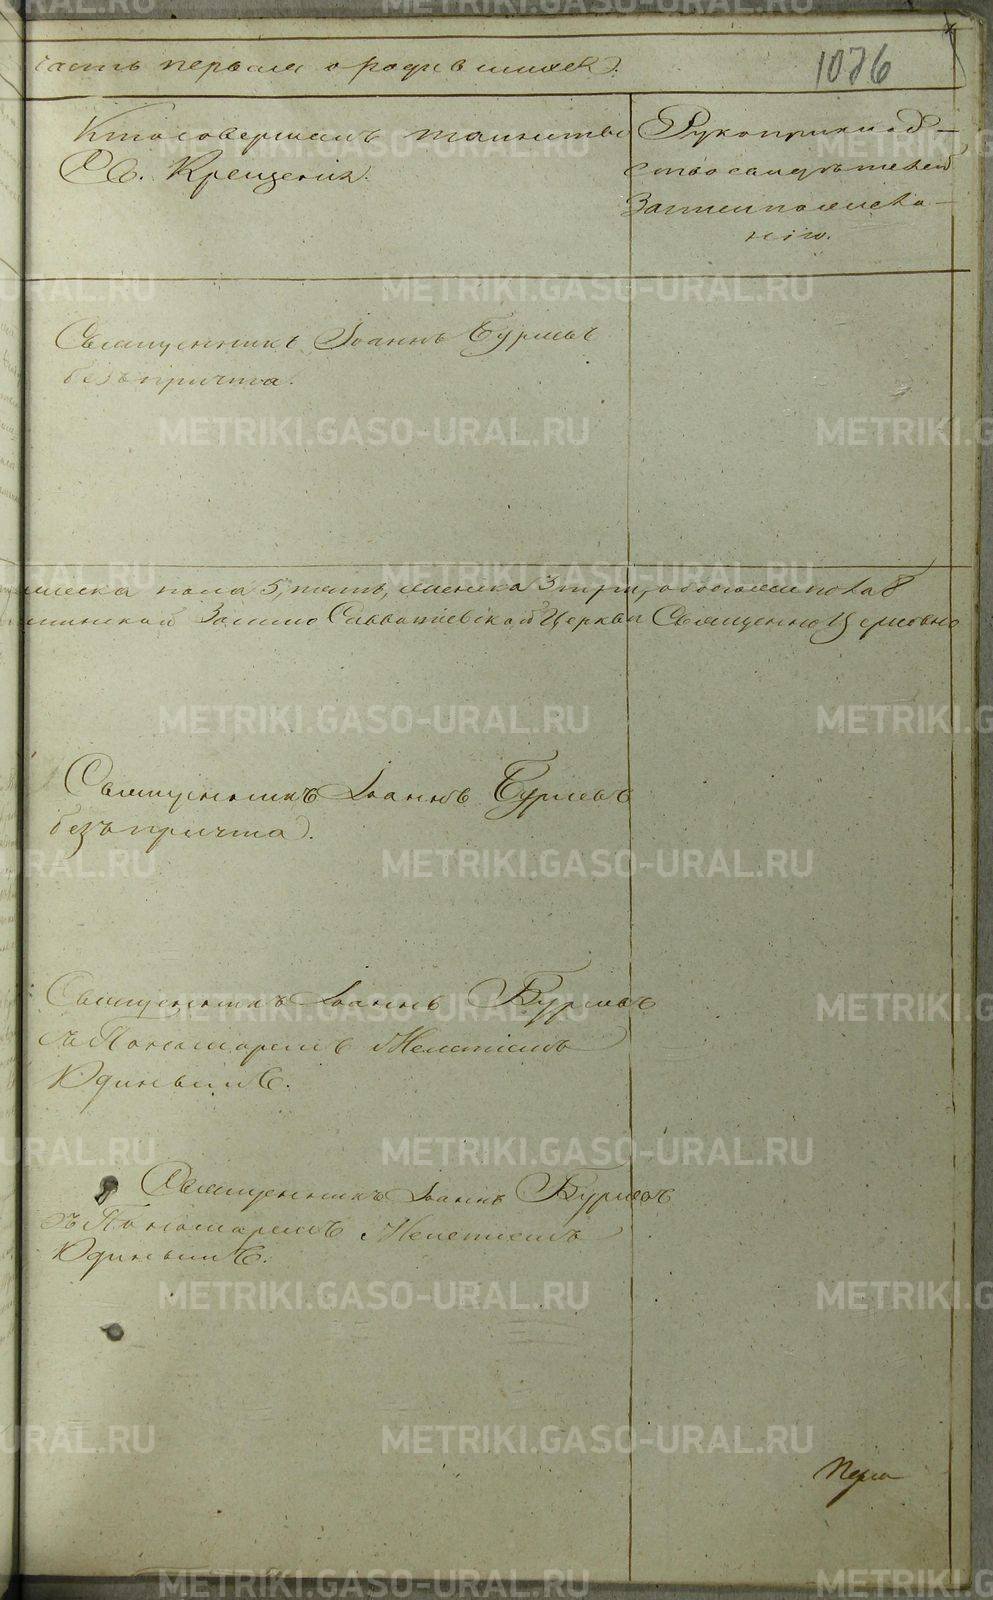 часть первая о родившихся.
1076
Кто совершалъ таинство
Св. Крещенія.
Рукоприклад-
ство свидѣтелей
записи по жела-
нію.
Священникъ Іоаннъ Бурмовъ
безъ причта.
мужеска пола 5, пять, женска 3 три, а обоего пола 8
Зосимо Савватіевской Церкви Священно Церковно
Священникъ Іоаннъ Бурмовъ
безъ причта.
Священникъ Іоаннъ Бурмовъ
съ Пономаремъ Мелетіемъ
Юдинымъ.
Священникъ Іоаннъ Бурмовъ
съ Пономаремъ Мелетіемъ
Юдинымъ.
METRIKI.GASO-URAL.RU